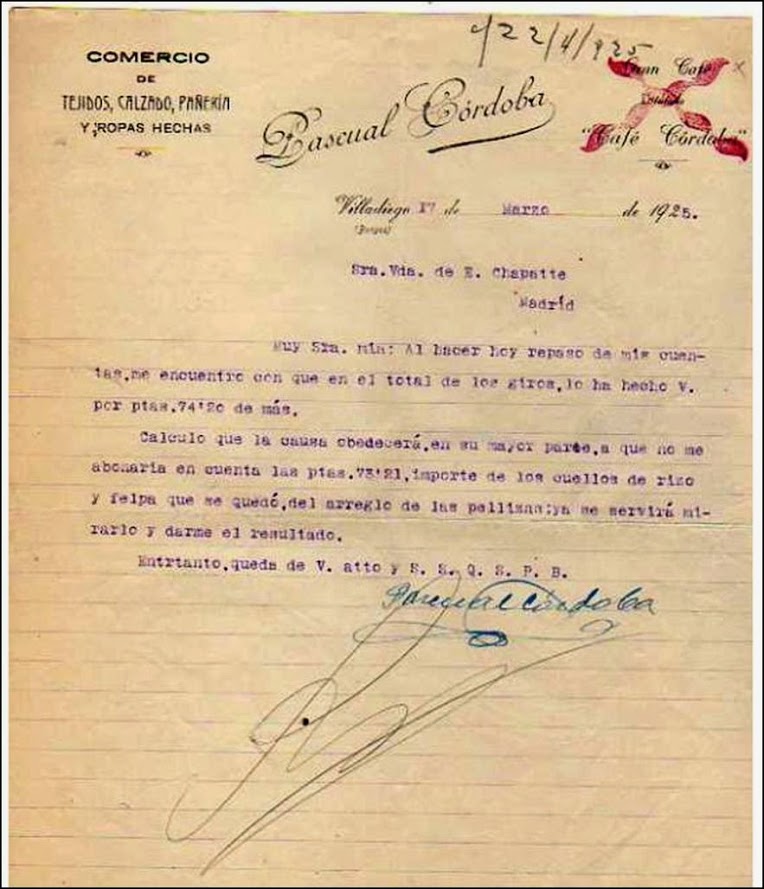 22/4/925
COMERCIO
DE
TEJIDOS, CALZADO, PAÑERÍA
Y ROPAS HECHAS
Pascual Córdoba
Gran Café
titulado
"Café Córdoba"
Villadiego 17 de Marzo de 1925.
(Burgos)
Sra.Vda. de E. Chapatte
Madríd
Muy Sra. mia: Al hacer hoy repaso de mis cuen-
tas,me encuentro con que en el total de los giros,lo ha hecho V.
por ptas.74'20 de más.
Calculo que la causa obedecerá,en su mayor parte,a que no me
abonaria en cuenta las ptas.73'21,importe de los cuellos de rizo
y felpa que se quedó,del arreglo de las pellizas:ya se servirá mi-
rarlo y darme el resultado.
Entrtanto,queda de V. atto y S. S. Q. S. P. B.
Pascual Córdoba